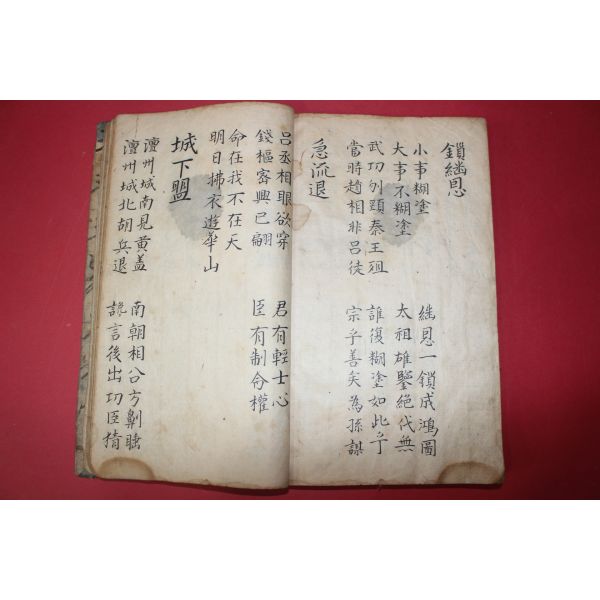 鎖継恩
小事糊塗 継恩一鎖成鴻圖
大事不糊塗 太祖雄鑒絶代無
武功刎頸秦王殂 誰復糊塗如此乎
當時趙相非呂徒 宗乎善矣為孫謀
急流退
呂丞相眼欲穿 君有輕士心
錢樞密興已翩 臣有制命權
命在我不在天
明日拂衣遊華山
城下盟
澶州城南見黃盖 南朝相公方鼾睡
澶州城北胡兵退 讒言後出功臣猜